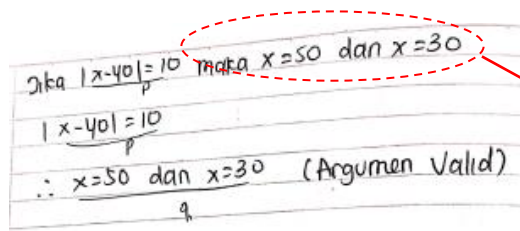 Jika |x-40|=10 maka x=50 dan x=30
p
|x-40|=10
p
∴ x=50 dan x=30 (Argumen Valid)
q